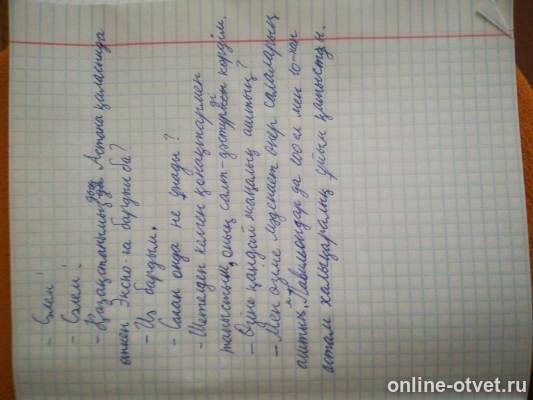 - Сәлем!
- Сәлем!
- Қазақстанымыздың Астана қаласында
өткен Экспо-ға бардың ба?
- Иә бардым.
- Саған онда не ұнады?
- Шетелден келген қонақтармен
таныстым, оның салт-дәстүрін көрдім.
- Өзіңе қандай жаңалық аштың?
- Мен өзіме мәдениет өнер салаларын
аштым. Павильондар да 100 ел мен 10-нан
астам халықаралық ұйым қатысты.
online-otvet.ru